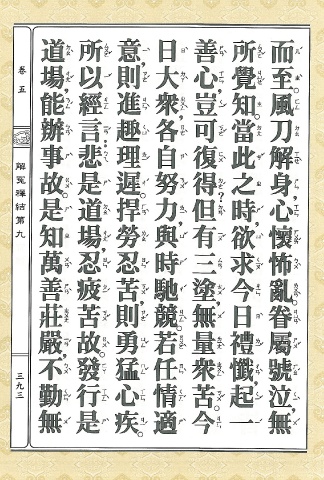 而至。風刀解身，心懷怖亂。眷屬號泣，無
所覺知。當此之時，欲求今日禮懺，起一
善心，豈可復得？但有三塗，無量衆苦。今
日大衆各自努力，與時馳競。若任情適
意，則進趣理遲。捍勞忍苦，則勇猛心疾。
所以經言：悲是道場，忍疲苦故。發行是
道場，能辦事故。是知萬善莊嚴，不勤無
卷五
解冤釋結第九
三九三